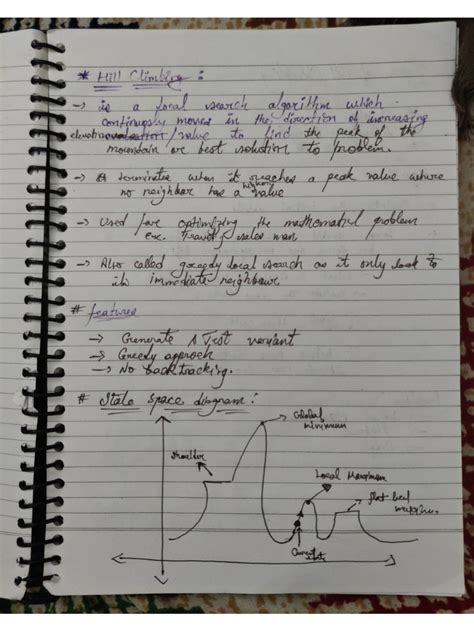 * Hill Climbing :
→ is a local search algorithm which
continuously moves in the direction of increasing
elevation /value to find the peak of the
mountain or best solution to problem.
→ It terminates when it reaches a peak value where
no neighbour has a higher value
→ Used for optimizing the mathematical problem
ex. Travel sales man
→ Also called greedy local search as it only look to
its immediate neighbour
# features
→ Generate & Test variant
→ Greedy approch
→ No backtracking.
# State Space diagram :
Global
minimum
shoulder
Local Maximum
flat local
Current
state